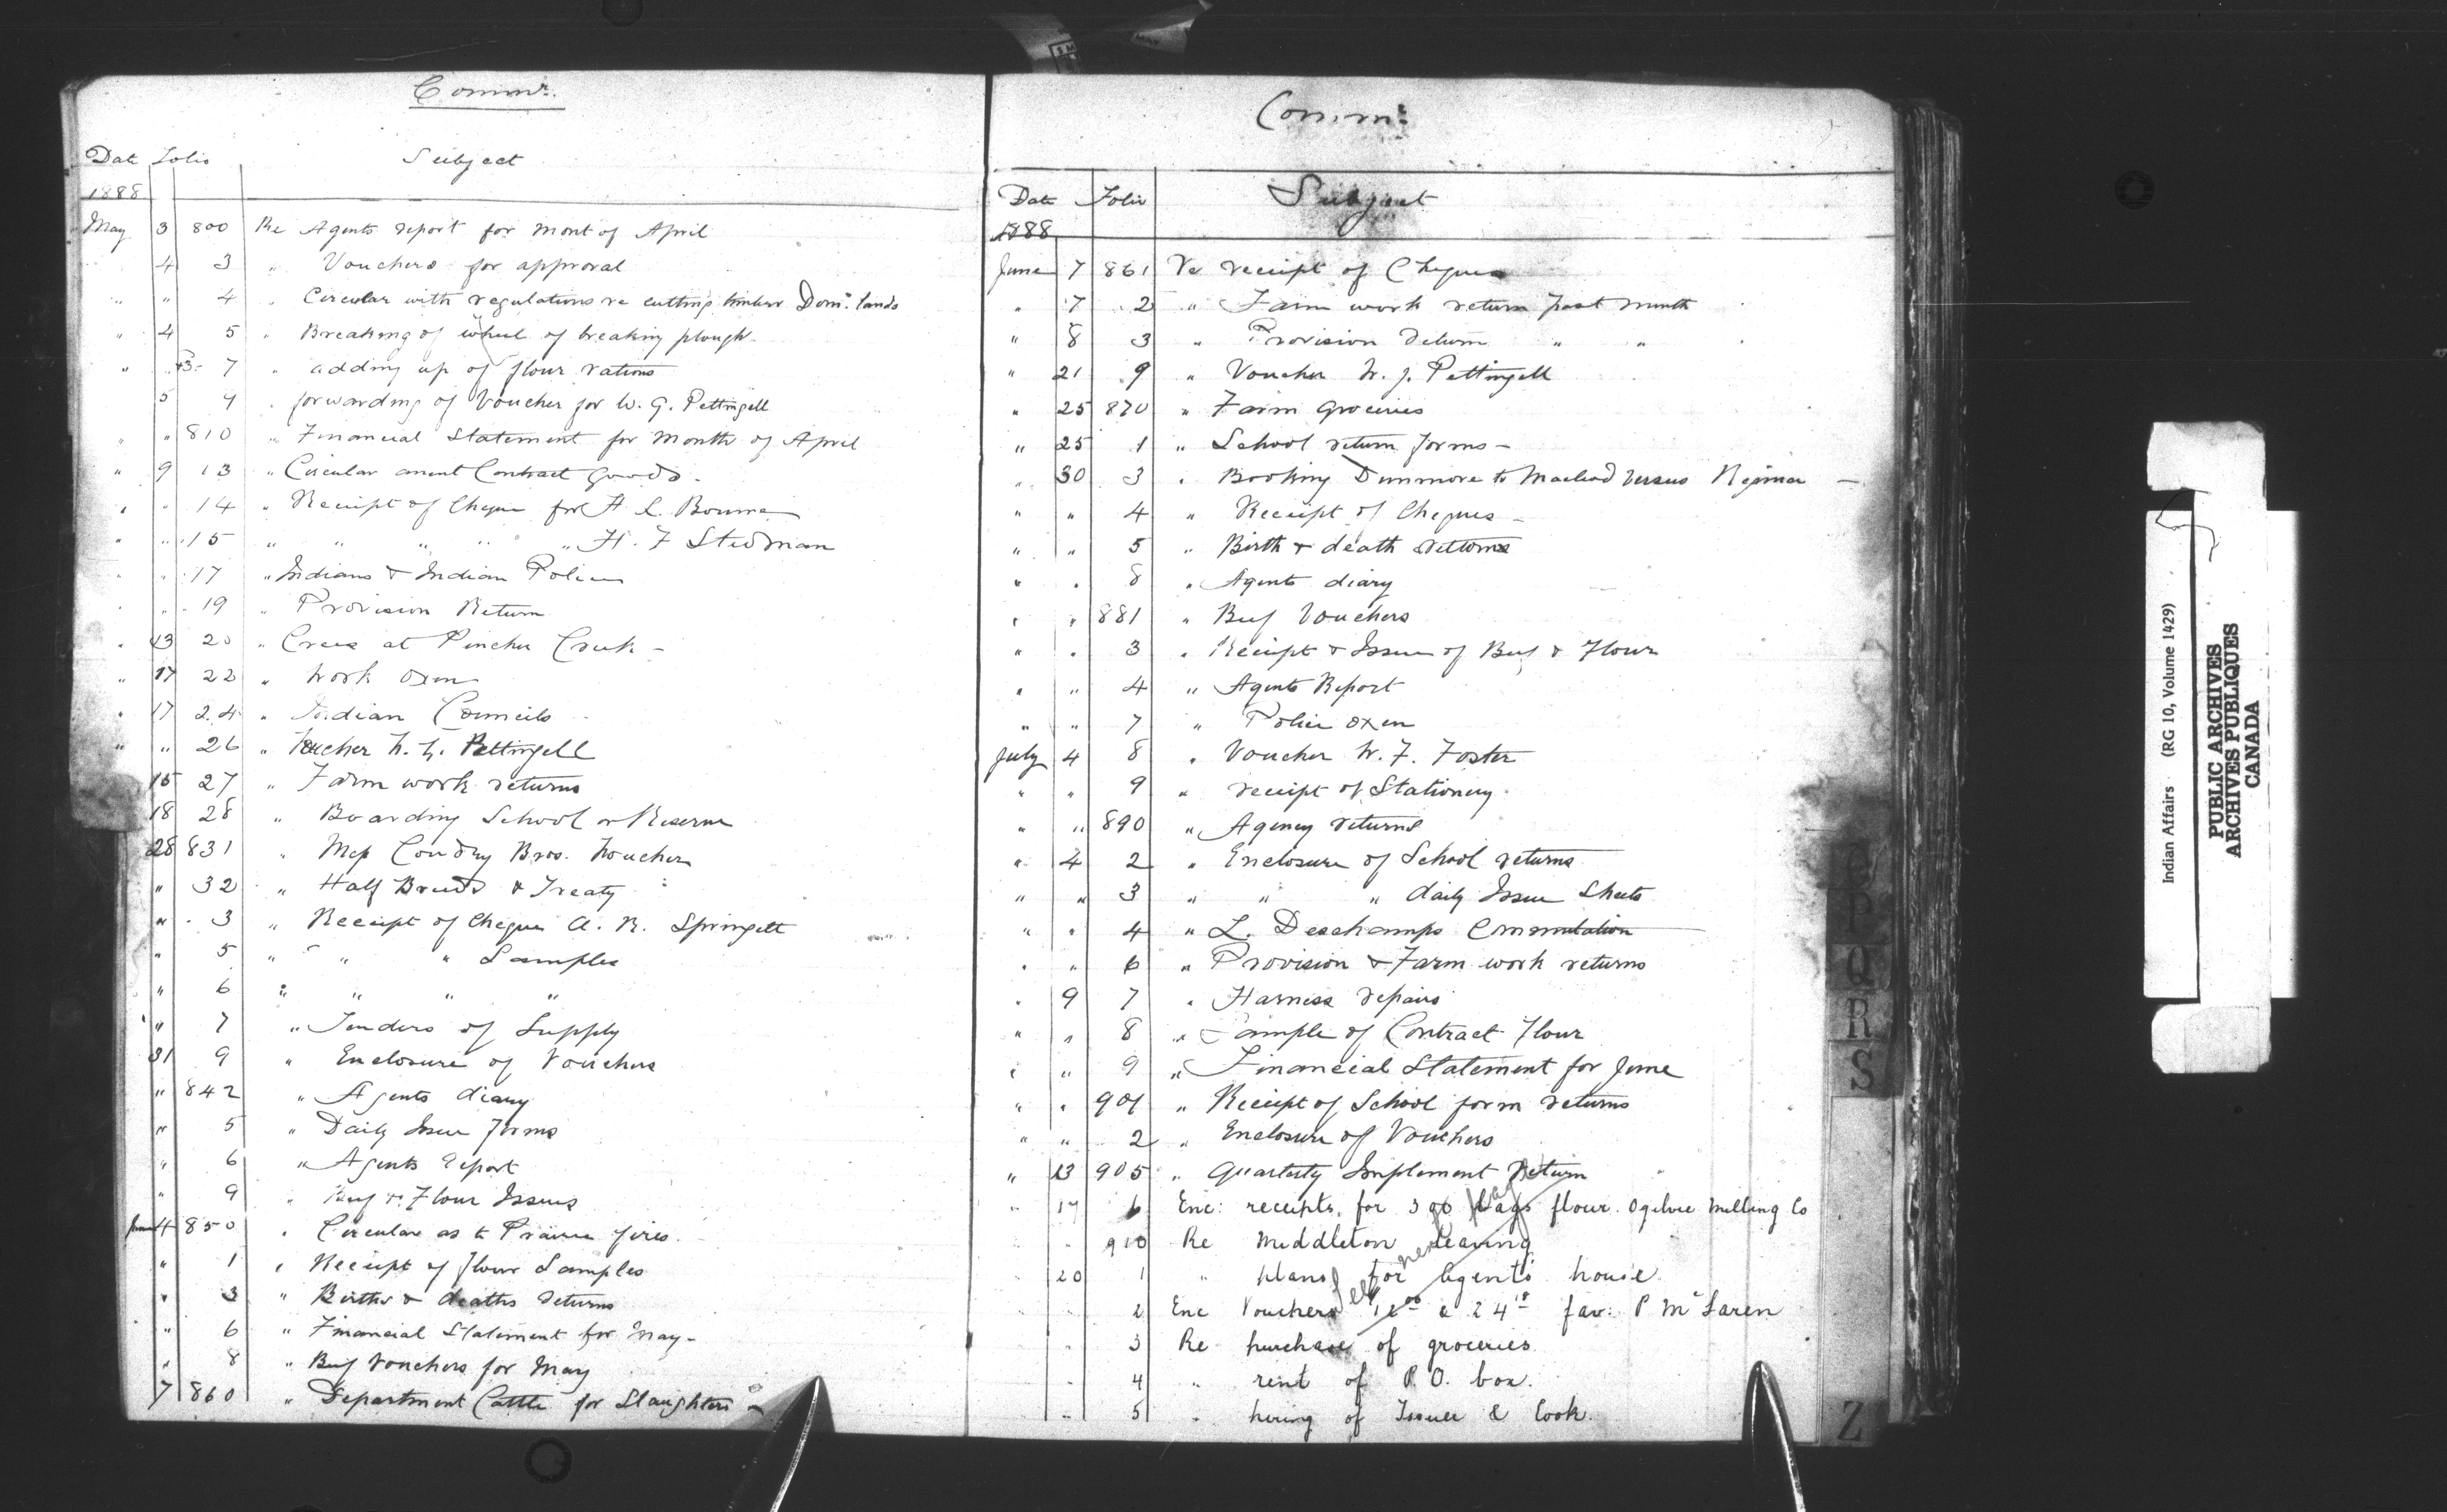 Commr.
Date Folio Subject
1888
May 3 800 Re Agents report for mont of April
4 3 " Vouchers for approval
" " 4 " Circular with regulations re cutting timber Domn. lands
" 4 5 " Breaking of wheel of breaking plough
" 7 " adding up of flour rations
5 9 " forwarding of Voucher for W. G. Pettingell
" " 810 " Financial Statement for Month of April
" 9 13 " Circular anent Contract goods.
" " 14 " Receipt of Cheque for A L. Bourne
" " 15 " " " " " H. F Stedman
" " 17 " Indians & Indian Police
" " 19 " Provision Return
" 13 20 " Crees at Pincher Creek -
" 17 22 " Work Oxen
" 17 24 " Indian Councils
" " 26 " Voucher W. G. Pettingell
15 27 " Farm work returns
18 28 " Boarding School on Reserve
28 831 " Coudry Bros. Voucher
" 32 " Half Breeds & Treaty
" 3 " Receipt of Cheque A. R. Springett
" 5 " " " " Samples
" 6 " " " "
" 7 " Tenders of Supply
31 9 " Enclosure of Vouchers
" 842 " Agents diary
" 5 " Daily Issue Forms
" 6 " Agents Report
" 9 " Beef & Flour Issues
June 4 850 " Circular as to Prairie fires.
" 1 " Receipt of flour Samples
" 3 " Births & deaths returns
" 6 " Financial Statement for May -
" 8 " Beef Vouchers for May
7 860 " Department Cattle for Slaughters
Commr.
Date Folio Subject
1888
June 7 861 Re receipt of Cheques
" 7 2 " Farm work return past month
" 8 3 " Provision return " "
" 21 9 " Voucher W. J. Pettingell
" 25 870 " Farm Groceries
" 25 1 " School return forms -
" 30 3 " Booking Dunmore to Macleod versus Regina -
" " 4 " Receipt of Cheques -
" " 5 " Birth & death returns
" " 8 " Agents diary
" " 881 " Beef Vouchers
" " 3 " Receipt & Issue of Beef & Flour
" " 4 " Agents Report
" " 7 " Police oxen
July 4 8 " Voucher W. F. Foster
" " 9 " receipt of Stationery.
" " 890 " Agency returns
" 4 2 " Enclosure of School returns
" " 3 " " " daily Issue Sheets
" " 4 " L. Deschamps Commutation
" " 6 " Provision & Farm work returns
" 9 7 " Harness repairs
" " 8 " Sample of Contract Flour
" " 9 " Financial Statement for June
" " 901 " Receipt of School form returns
" " 2 " Enclosure of Vouchers
" 13 905 " Quarterly Implement Return
" 17 6 Enc: receipts, for 300 bags flour. Ogilvie Milling Co
" 910 Re Middleton leaving
" 20 1 " plans for Agent's house
" " 2 Enc Vouchers & 24 fav: P McLaren
" 3 Re purchase of groceries
" 4 " rent of P.O. box.
" 5 " hiring of Issuer & Cook.
see next page
P
Q
R
S
Z
Indian Affairs (RG 10, Volume 1429)
PUBLIC ARCHIVES
ARCHIVES PUBLIQUES
CANADA